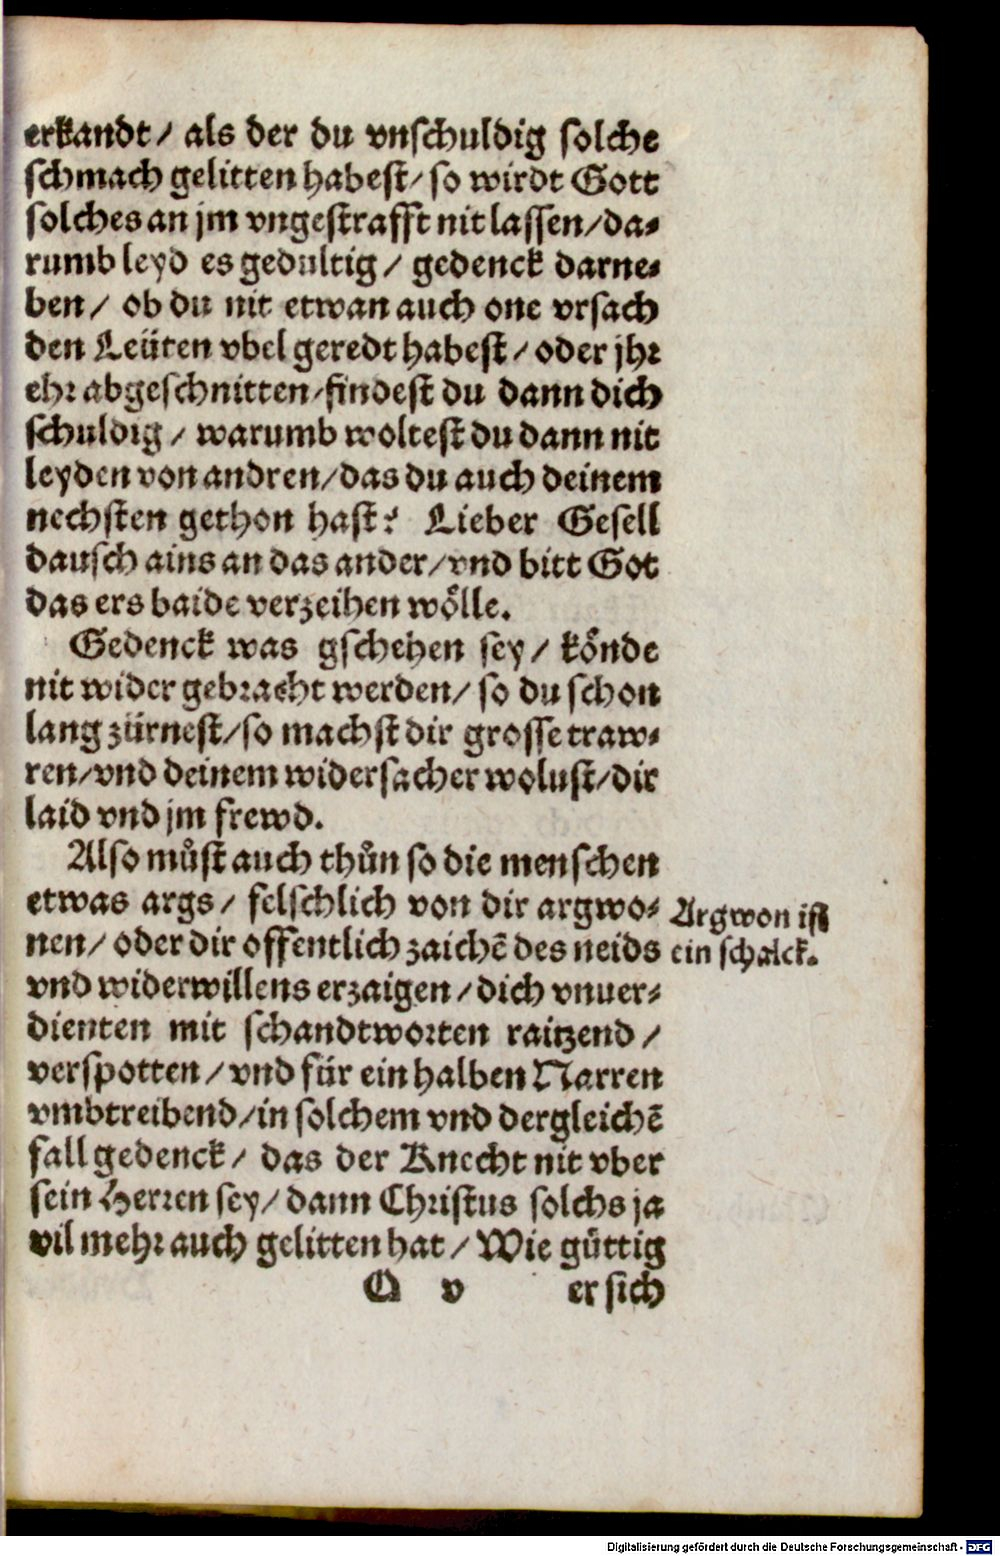 erkandt / als der du vnschuldig solche
schmach gelitten habest / so wirdt Gott
solches an jm vngestrafft nit lassen / da⸗
rumb leyd es gedultig / gedenck darne⸗
ben / ob du nit etwan auch one vrsach
den Leüten vbel geredt habest / oder jhr
ehr abgeschnitten / findest du dann dich
schuldig / warumb woltest du dann nit
leyden von andren / das du auch deinem
nechsten gethon hast? Lieber Gesell
dausch ains an das ander / vnd bitt Got
das ers baide verzeihen woͤlle.
Gedenck was gschehen sey / koͤnde
nit wider gebracht werden / so du schon
lang zürnest / so machst dir grosse traw⸗
ren / vnd deinem widersacher wolust / dir
laid vnd jm frewd.
Also můst auch thůn so die menschen
etwas args / felschlich von dir argwo⸗
nen / oder dir offentlich zaichē des neids
Argwon ist
ein schalck.
vnd widerwillens erzaigen / dich vnuer⸗
dienten mit schandtworten raitzend /
verspotten / vnd für ein halben Narren
vmbtreibend / in solchem vnd dergleichē
fall gedenck / das der Knecht nit vber
sein Herren sey / dann Christus solchs ja
vil mehr auch gelitten hat / Wie güttig
Q v er sich
Digitalisierung gefördert durch die Deutsche Forschungsgemeinschaft - DFG